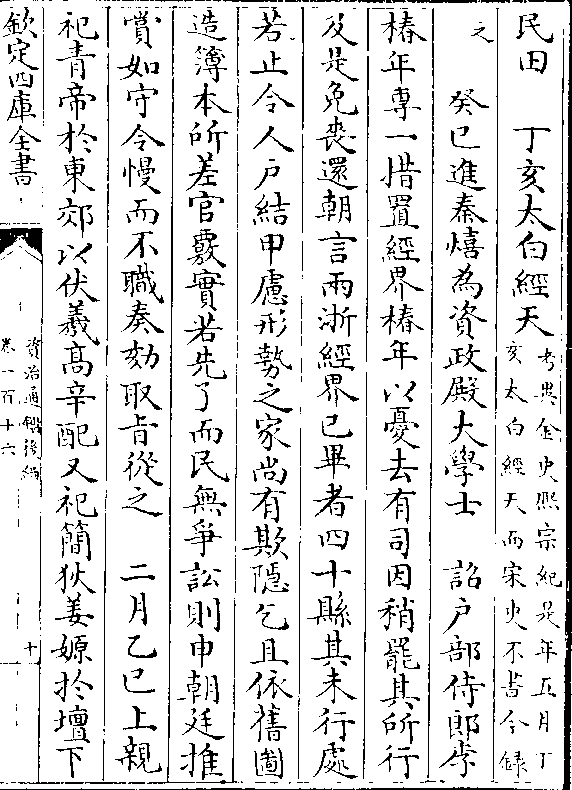 民田　丁亥太白經天考異金史熙宗紀是年五月丁亥太白經天而宋史不書今錄
之　癸巳進秦熺為資政殿大學士　詔戶部侍郎李
椿年專一措置經界椿年以憂去有司因稍罷其所行
及是免喪還朝言兩浙經界已畢者四十縣其未行處
若止令人戶結甲慮形勢之家尚有欺隱乞且依舊圖
造簿本所差官覈實若先了而民無爭訟則申朝廷推
賞如守令慢而不職奏劾取旨從之　二月乙巳上親
祀青帝於東郊以伏羲高辛配又祀簡狄姜嫄於壇下
欽定四庫全書
資治通鑑後編
卷一百十六
十